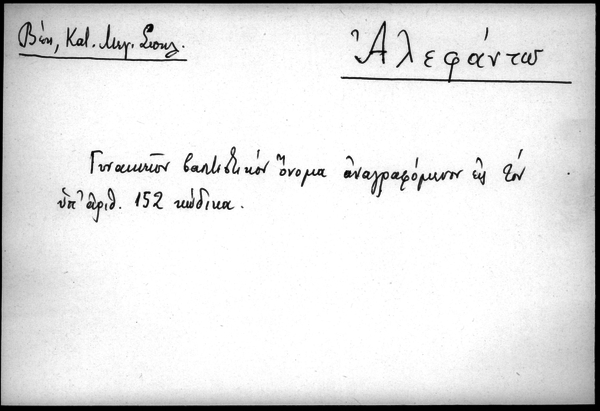 Βέη, Κατ. Μεγ. Σπηλ.
Ἀλεφάντω
Γυναικεῖον βαπτιστικόν ὄνομα ἀναγραφόμενον εἰς τόν
ὑπ' ἀριθ. 152 κώδικα.